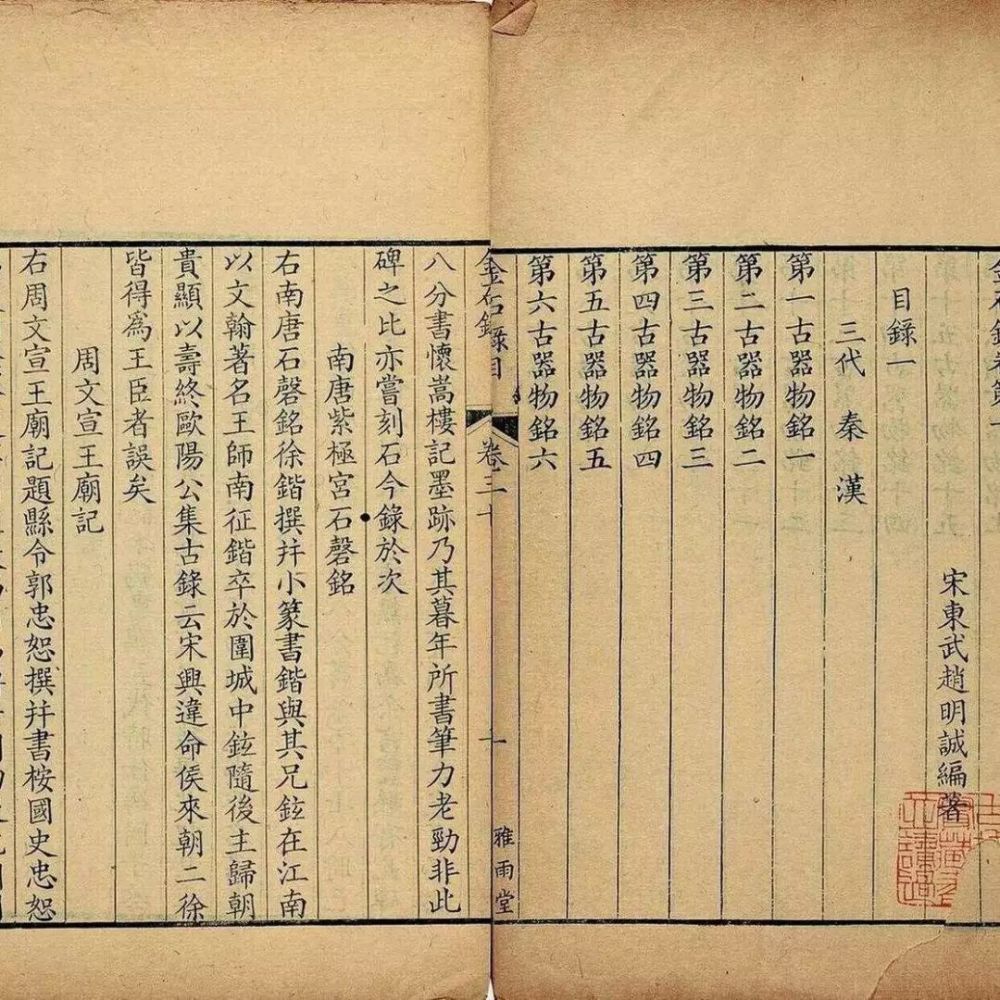 金石錄卷第一
目錄一
宋東武趙明誠編著
三代 秦 漢
第一古器物銘一
第二古器物銘二
第三古器物銘三
第四古器物銘四
第五古器物銘五
第六古器物銘六
金石錄目
卷三十
一
雅雨堂
八分書懷嵩樓記墨跡乃其暮年所書筆力老勁非此
碑之比亦嘗刻石今錄於次
南唐紫極宮石磬銘
右南唐石磬銘徐鍇撰并小篆書鍇與其兄鉉在江南
以文翰著名王師南征鍇卒於圍城中鉉隨後主歸朝
貴顯以壽終歐陽公集古錄云宋興違命侯來朝二徐
皆得為王臣者誤矣
周文宣王廟記
右周文宣王廟記題縣令郭忠恕撰并書桉國史忠恕